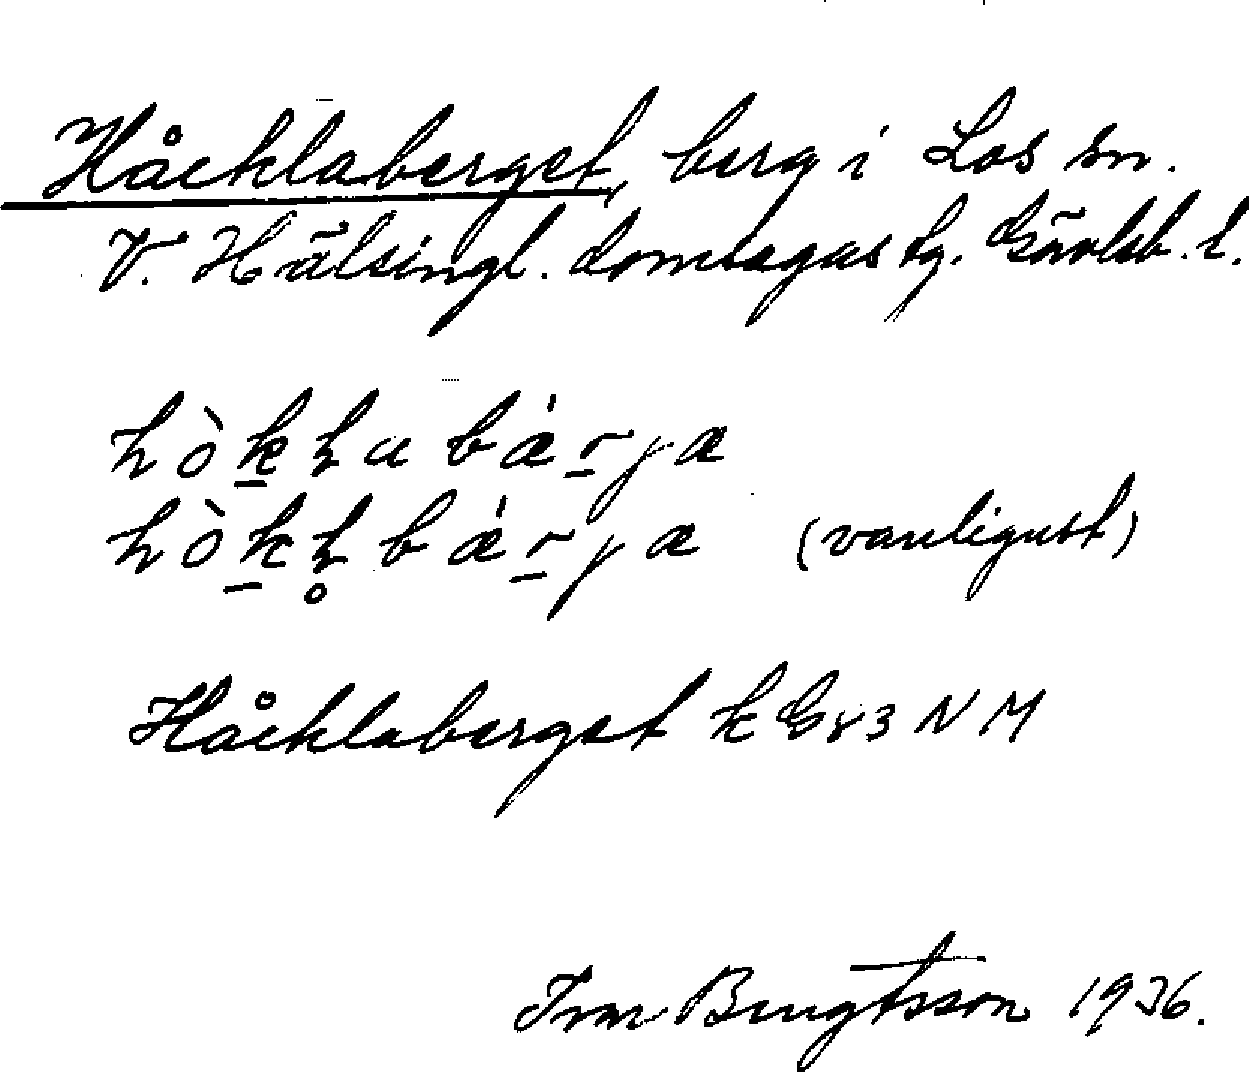 Håcklaberget, berg i Los sn.
V. Hälsingl. domsagas tg. Gävleb. l.
hòk̲ɫa bǽr̲ja
hòk̲ɫ̥ bǽr̲ja (vanligast)
Håcklaberget k G83 N M
Ivar Bengtsson 1936.